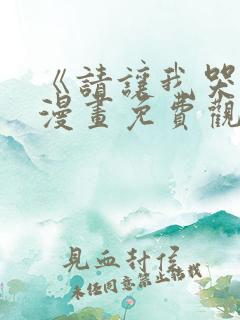 《請讓我哭
漫畫免費觀
見血封侯
未经同意禁止转载